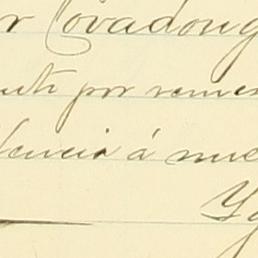 r Covadong
ute por remes
dencia á nue
Y